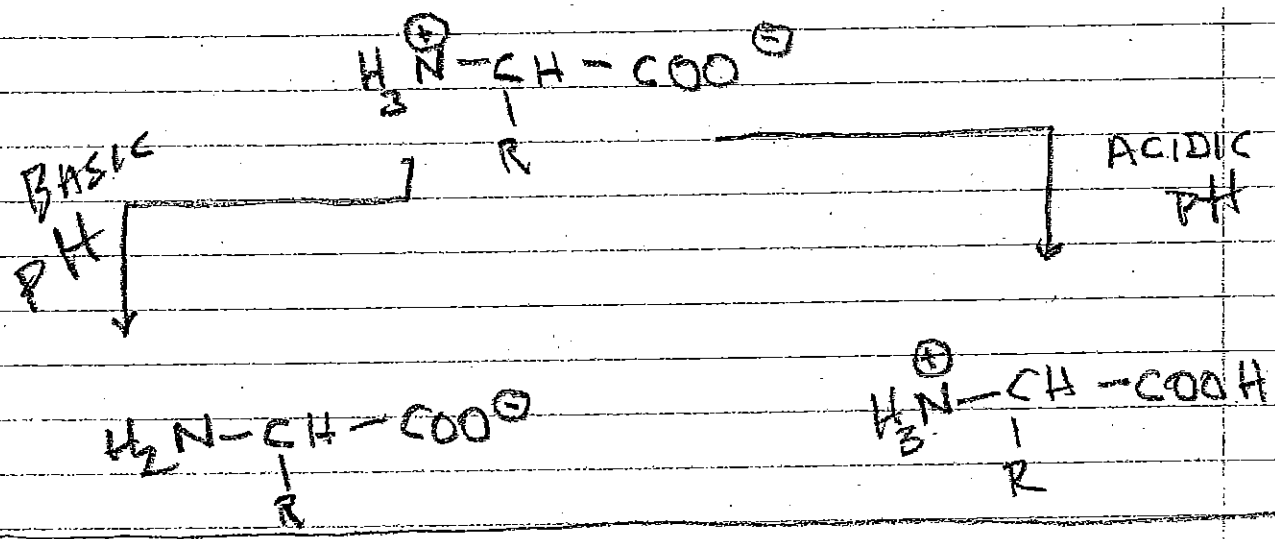 H₃N⊕-CH-COO⊖
R
BASIC
PH
ACIDIC
PH
H₂N-CH-COO⊖
R
H₃N⊕-CH-COOH
R